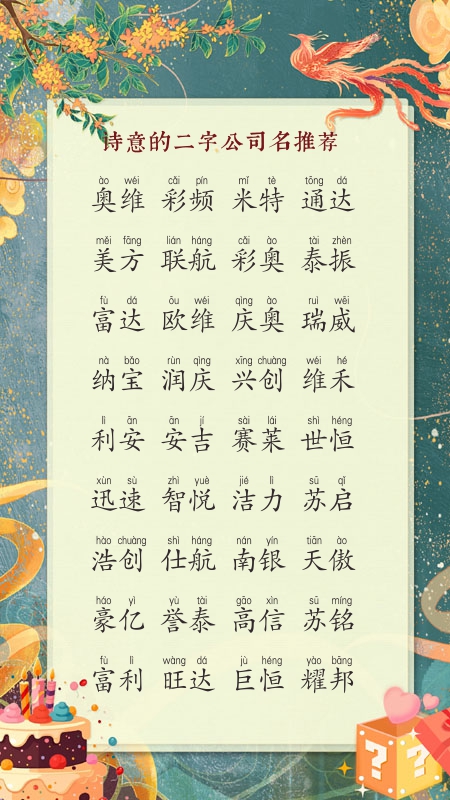 诗意的二字公司名推荐
ào wéi cǎi pín mǐ tè tōng dá
奥维 彩频 米特 通达
měi fāng lián háng cǎi ào tài zhèn
美方 联航 彩奥 泰振
fù dá ōu wéi qìng ào ruì wēi
富达 欧维 庆奥 瑞威
nà bǎo rùn qìng xīng chuàng wéi hé
纳宝 润庆 兴创 维禾
lì ān ān jí sài lái shì héng
利安 安吉 赛莱 世恒
xùn sù zhì yuè jié lì sū qǐ
迅速 智悦 洁力 苏启
hào chuàng shì háng nán yín tiān ào
浩创 仕航 南银 天傲
háo yì yù tài gāo xìn sū míng
豪亿 誉泰 高信 苏铭
fù lì wàng dá jù héng yào bāng
富利 旺达 巨恒 耀邦
? ?